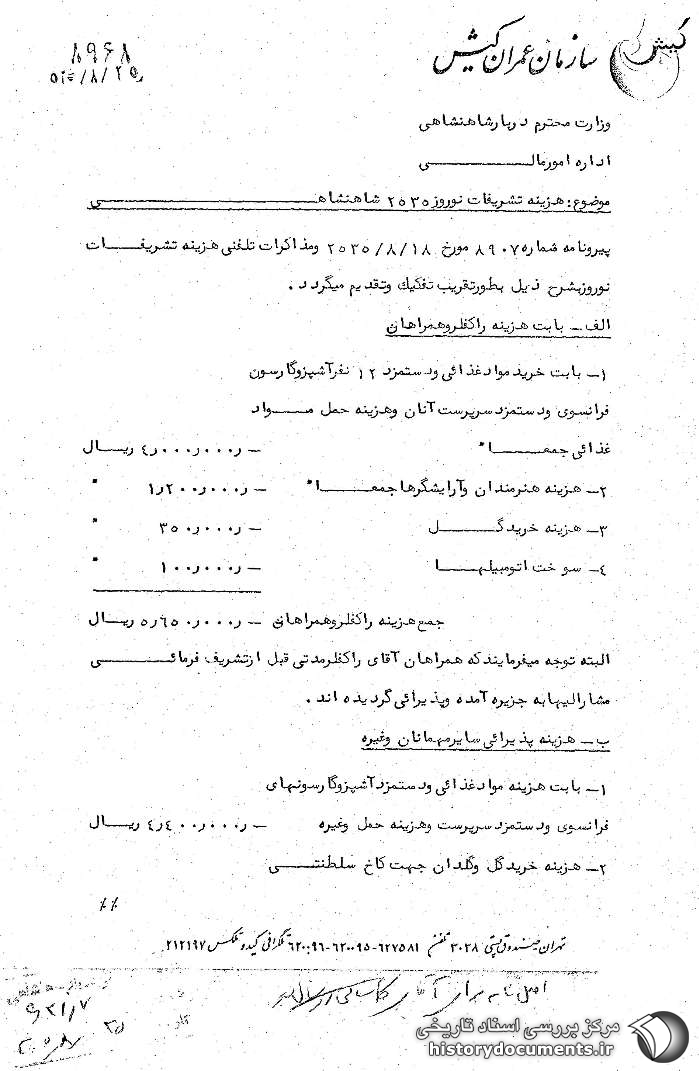 کیش
سازمان عمران کیش
۸۹۶۸
وزارت محترم دربار شاهنشاهی
اداره امور مالــی
موضوع: هزینه تشریفات نوروز ۲۵۳۵ شاهنشاهــی
پیرونامه شماره ۸۹۰۷ مورخ ۲۵۳۵/۸/۱۸ ومذاکرات تلفنی هزینه تشریفــات
نوروز بشرح ذیل بطور تقریب تفکیک وتقدیم میگردد .
الف – بابت هزینه راکفلر وهمراهان
۱– بابت خرید مواد غذائی ودستمزد ۱۲ نفر آشپز وگارسون
فرانسوی ودستمزد سرپرست آنان وهزینه حمل مــواد
غذائی جمعــا" –ر۰۰۰ر۰۰۰ر۴ ریــال
۲– هزینه هنرمندان وآرایشگرها جمعــا" –ر۰۰۰ر۲۰۰ر۱ "
۳– هزینه خرید گــل –ر۰۰۰ر۳۵۰ "
۴– سوخت اتومبیلهــا –ر۰۰۰ر۱۰۰ "
جمع هزینه راکفلر وهمراهان –ر۰۰۰ر۶۵۰ر۵ ریــال
البته توجه میفرمایند که همراهان آقای راکفلر مدتی قبل از تشریف فرمائــی
مشارالیها به جزیره آمده وپذیرائی گردیده اند .
ب – هزینه پذیرائی سایر مهمانان وغیره
۱– بابت هزینه مواد غذائی ودستمزد آشپز وگارسونهای
فرانسوی ودستمزد سرپرست وهزینه حمل وغیره –ر۰۰۰ر۴۰۰ر۴ ریــال
۲– هزینه خرید گل وگلدان جهت کاخ سلطنتــی
٪ ٪
تهران صندوق پستی ۳۰۲۸ تلفن ۶۲۷۵۸۱–۶۲۰۰۹۵–۶۲۰۰۹۶ تلگرافی کیدو تلکس ۲۱۲۱۹۷
اصل نامه برای آقای
مرکز بررسی اسناد تاریخی
historydocuments.ir